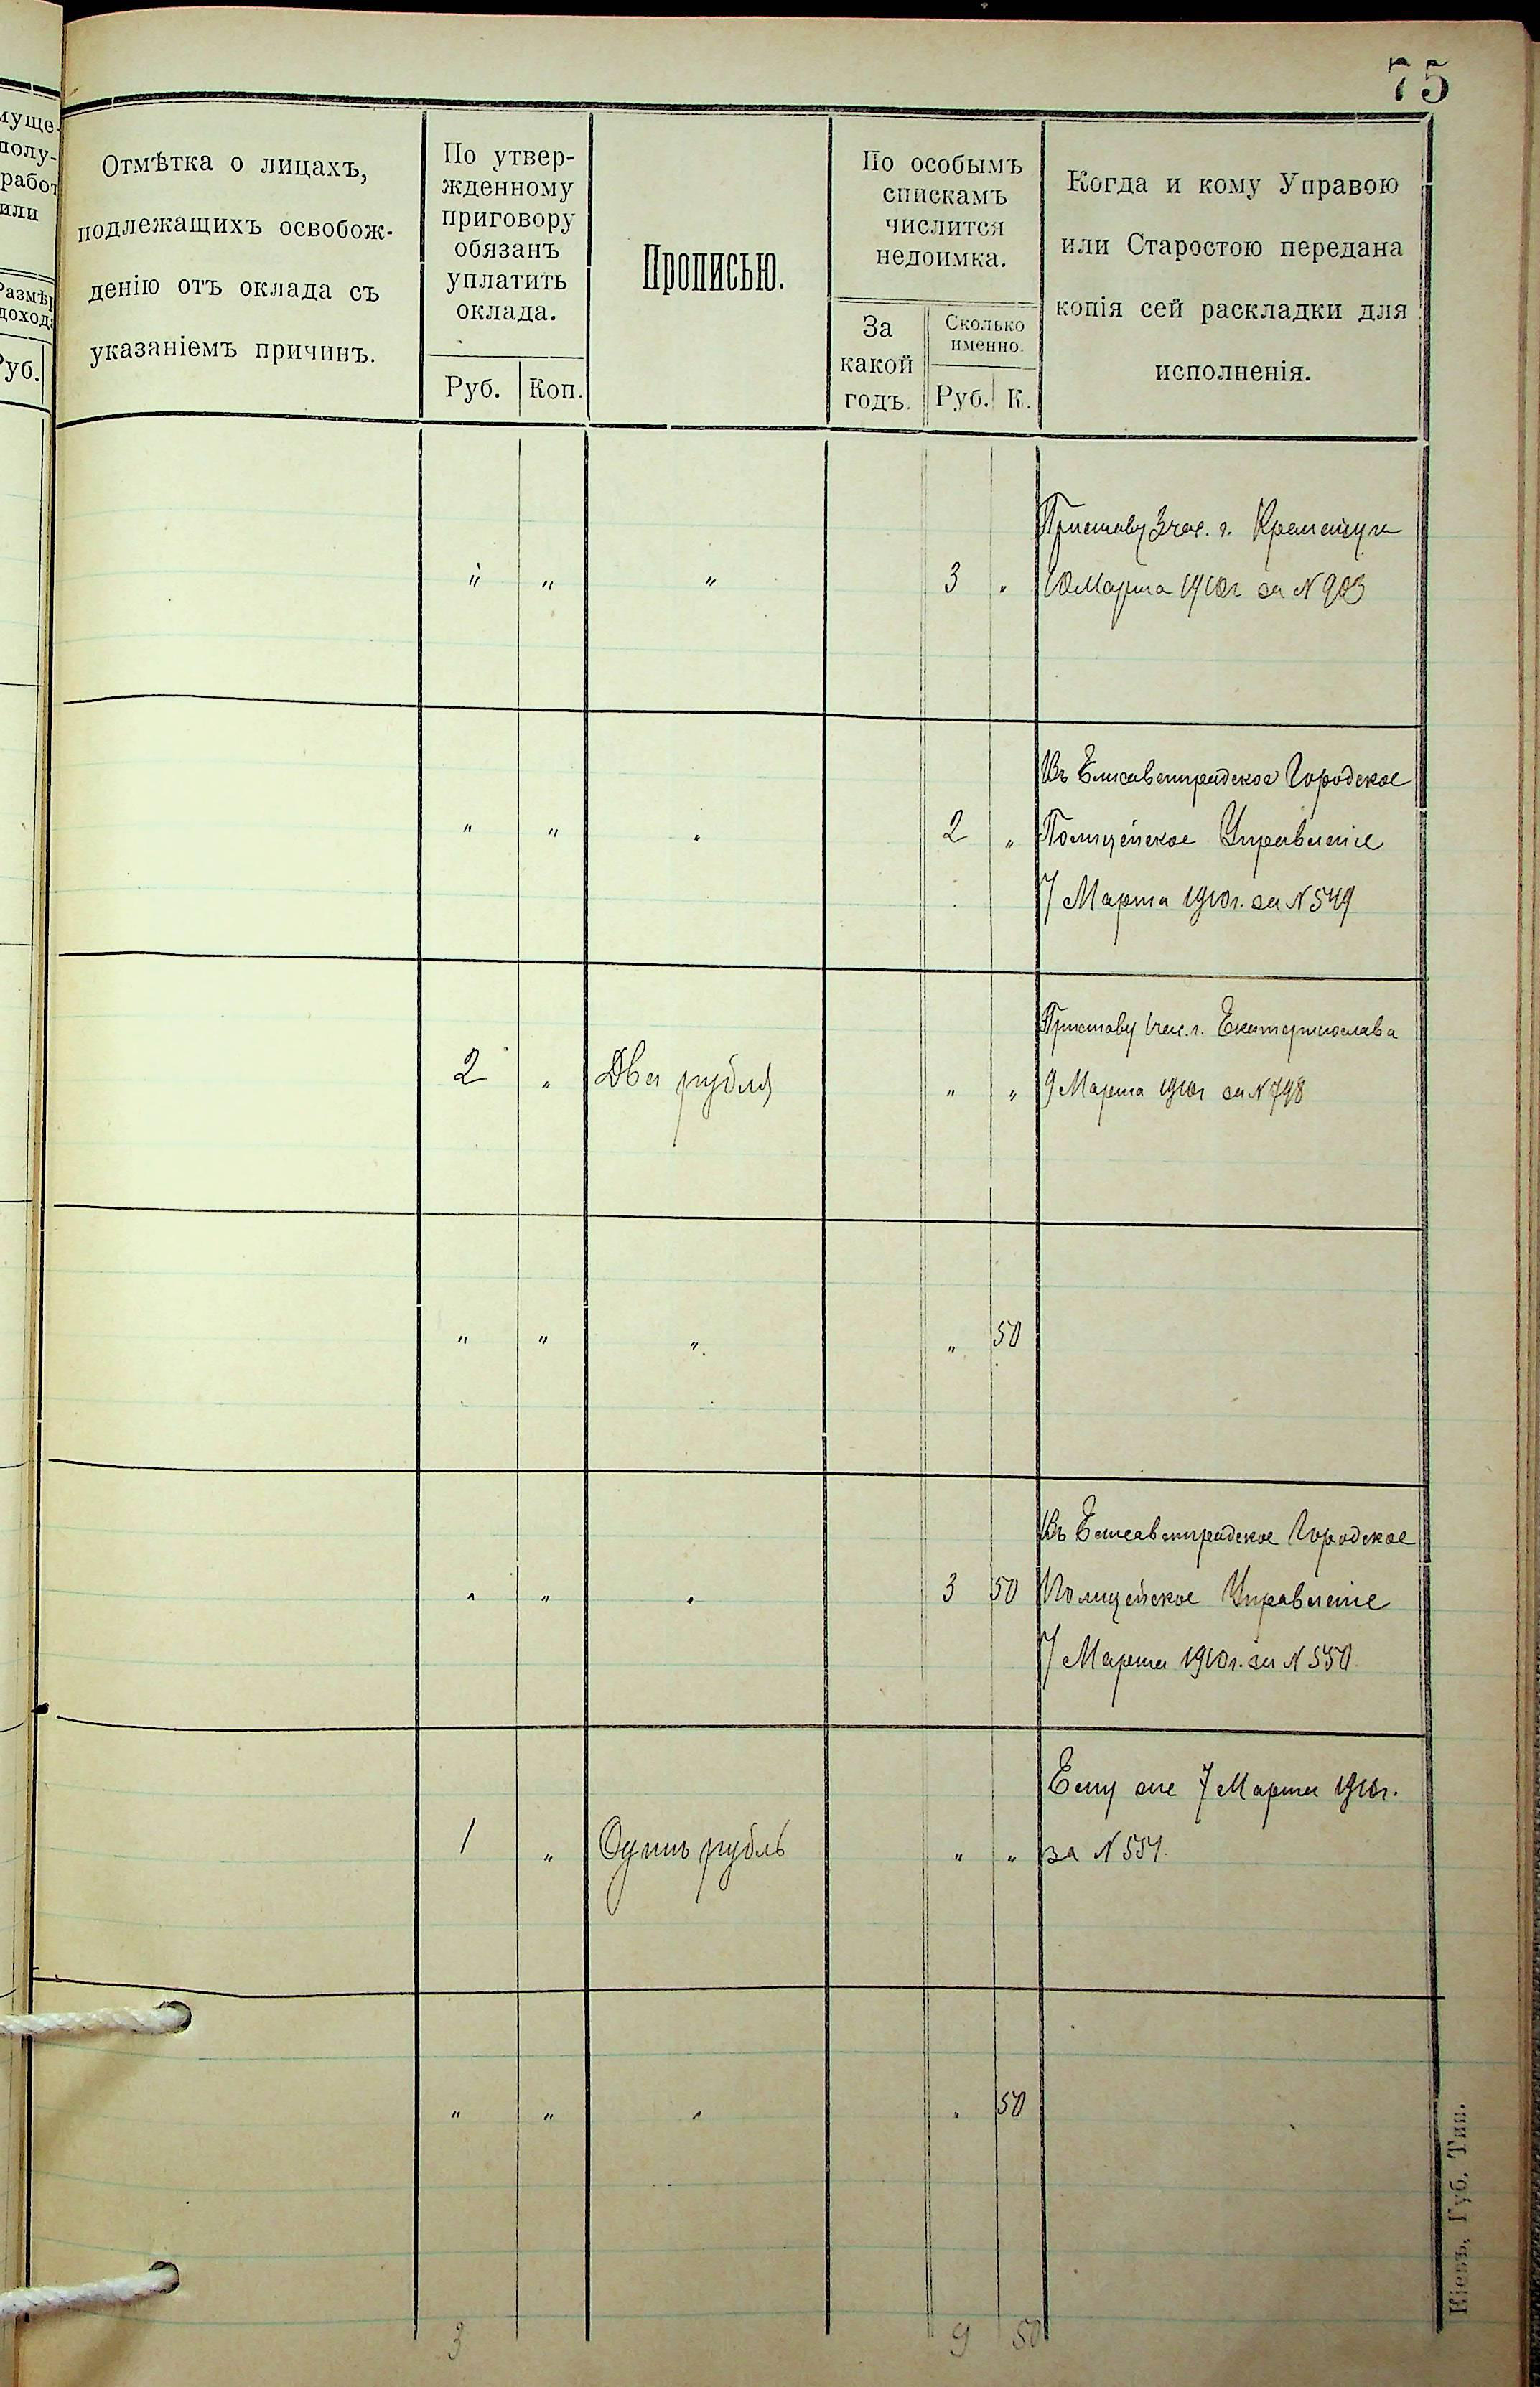 75
муще-
полу-
работ
или
Размѣр
дохода
Руб.
Отмѣтка о лицахъ,
подлежащихъ освобож-
денію отъ оклада съ
указаніемъ причинъ.
По утвер-
жденному
приговору
обязанъ
уплатить
оклада.
Руб. Коп.
Прописью.
По особымъ
спискамъ
числится
недоимка.
За
какой
годъ.
Сколько
именно.
Руб. К.
Когда и кому Управою
или Старостою передана
копія сей раскладки для
исполненія.
Приставу 3 час. г. Кременчуга
" " " 3 " 10 Марта 1910г за N 903
Въ Елисаветградское Городское
" " " 2 " Полицейское Управленіе
7 Марта 1910г. за N 549
Приставу 1 час. г. Екатеринослава
2 " Два рубля " " 9 Марта 1910г за N 798
" " " " 50
Въ Елисаветградское Городское
" " " 3 50 Полицейское Управленіе
7 Марта 1910г. за N 550
Ему же 7 Марта 1910г.
1 " Одинъ рубль " " за N 551.
" " " " 50
3 9 50
Кіевъ, Губ. Тип.